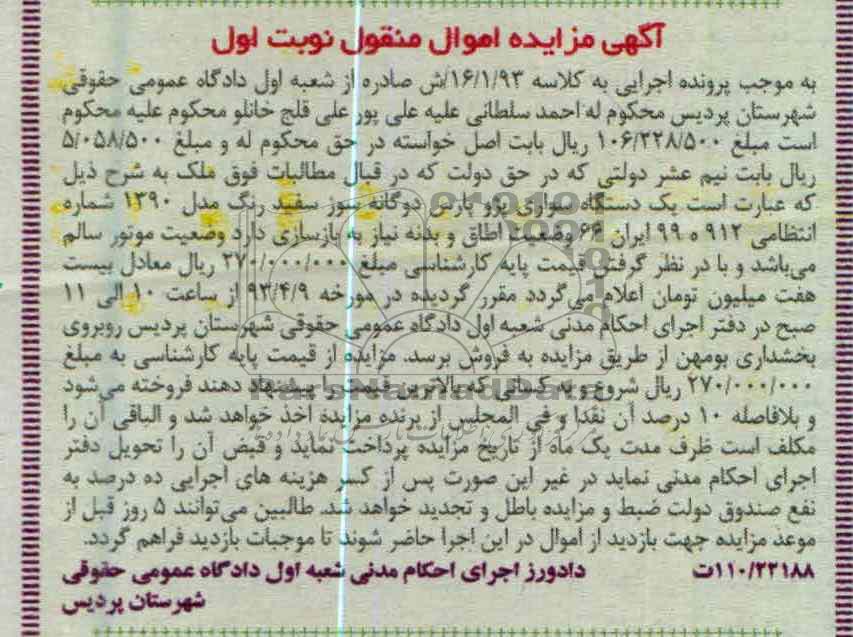 آگهی مزایده اموال منقول نوبت اول
به موجب پرونده اجرایی به کلاسه ۱۶/۱/۹۳/ش صادره از شعبه اول دادگاه عمومی حقوقی
شهرستان پردیس محکوم له احمد سلطانی علیه علی پور علی قلج خانلو محکوم علیه محکوم
است مبلغ ۱۰۶/۲۲۸/۵۰۰ ریال بابت اصل خواسته در حق محکوم له و مبلغ ۵/۰۵۸/۵۰۰
ریال بابت نیم عشر دولتی که در حق دولت که در قبال مطالبات فوق ملک به شرح ذیل
که عبارت است یک دستگاه سواری پژو پارس دوگانه سوز سفید رنگ مدل ۱۳۹۰ شماره
انتظامی ۹۱۲ ه ۹۹ ایران ۶۶ وضعیت اطاق و بدنه نیاز به بازسازی دارد وضعیت موتور سالم
می‌باشد و با در نظر گرفتن قیمت پایه کارشناسی مبلغ ۲۷۰/۰۰۰/۰۰۰ ریال معادل بیست
هفت میلیون تومان اعلام می‌گردد مقرر گردیده در مورخه ۹۳/۴/۹ از ساعت ۱۰ الی ۱۱
صبح در دفتر اجرای احکام مدنی شعبه اول دادگاه عمومی حقوقی شهرستان پردیس روبروی
بخشداری بومهن از طریق مزایده به فروش برسد. مزایده از قیمت پایه کارشناسی به مبلغ
۲۷۰/۰۰۰/۰۰۰ ریال شروع و به کسانی که بالاترین قیمت را پیشنهاد دهند فروخته می‌شود
و بلافاصله ۱۰ درصد آن نقدا و فی المجلس از برنده مزایده اخذ خواهد شد و الباقی آن را
مکلف است ظرف مدت یک ماه از تاریخ مزایده پرداخت نماید و قبض آن را تحویل دفتر
اجرای احکام مدنی نماید در غیر این صورت پس از کسر هزینه های اجرایی ده درصد به
نفع صندوق دولت ضبط و مزایده باطل و تجدید خواهد شد. طالبین می‌توانند ۵ روز قبل از
موعد مزایده جهت بازدید از اموال در این اجرا حاضر شوند تا موجبات بازدید فراهم گردد.
۱۱۰/۲۲۱۸۸ت دادورز اجرای احکام مدنی شعبه اول دادگاه عمومی حقوقی
شهرستان پردیس
ParsNamadData